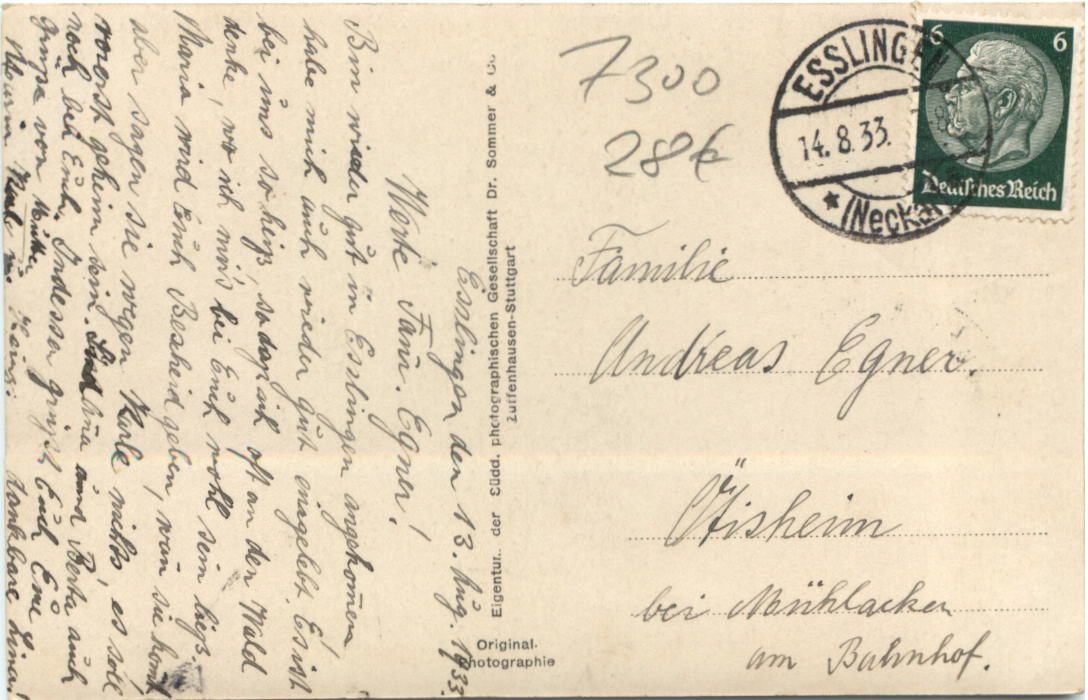 Esslingen den 13. Aug. 1933.
Werte Fam. Egner!
Bin wieder gut in Esslingen angekomen,
habe mich auch wieder gut eingelebt. Es ist
bei uns so heiß, sodaß ich oft an den Wald
denke, wo ich mir's bei Euch wohl sein ließ.
Maria wird Euch Bescheid geben, wan sie komt
aber sagen sie wegen Karle nichts, es soll
vorerst geheim sein. Sind Lina und Berta auch
noch bei Euch. Indessen grüßt Euch Eure
Grüße von Mutter dankbare Lina!
Maria Karle u. Heinz.
Eigentum der Südd. photographischen Gesellschaft Dr. Sommer & Co.
Zuffenhausen-Stuttgart
Original-
Photographie
7300
28€
ESSLINGEN
14. 8. 33.
* (Neckar)
6 6
Deutsches Reich
Familie
Andreas Egner.
Ötisheim
bei Mühlacker
am Bahnhof.